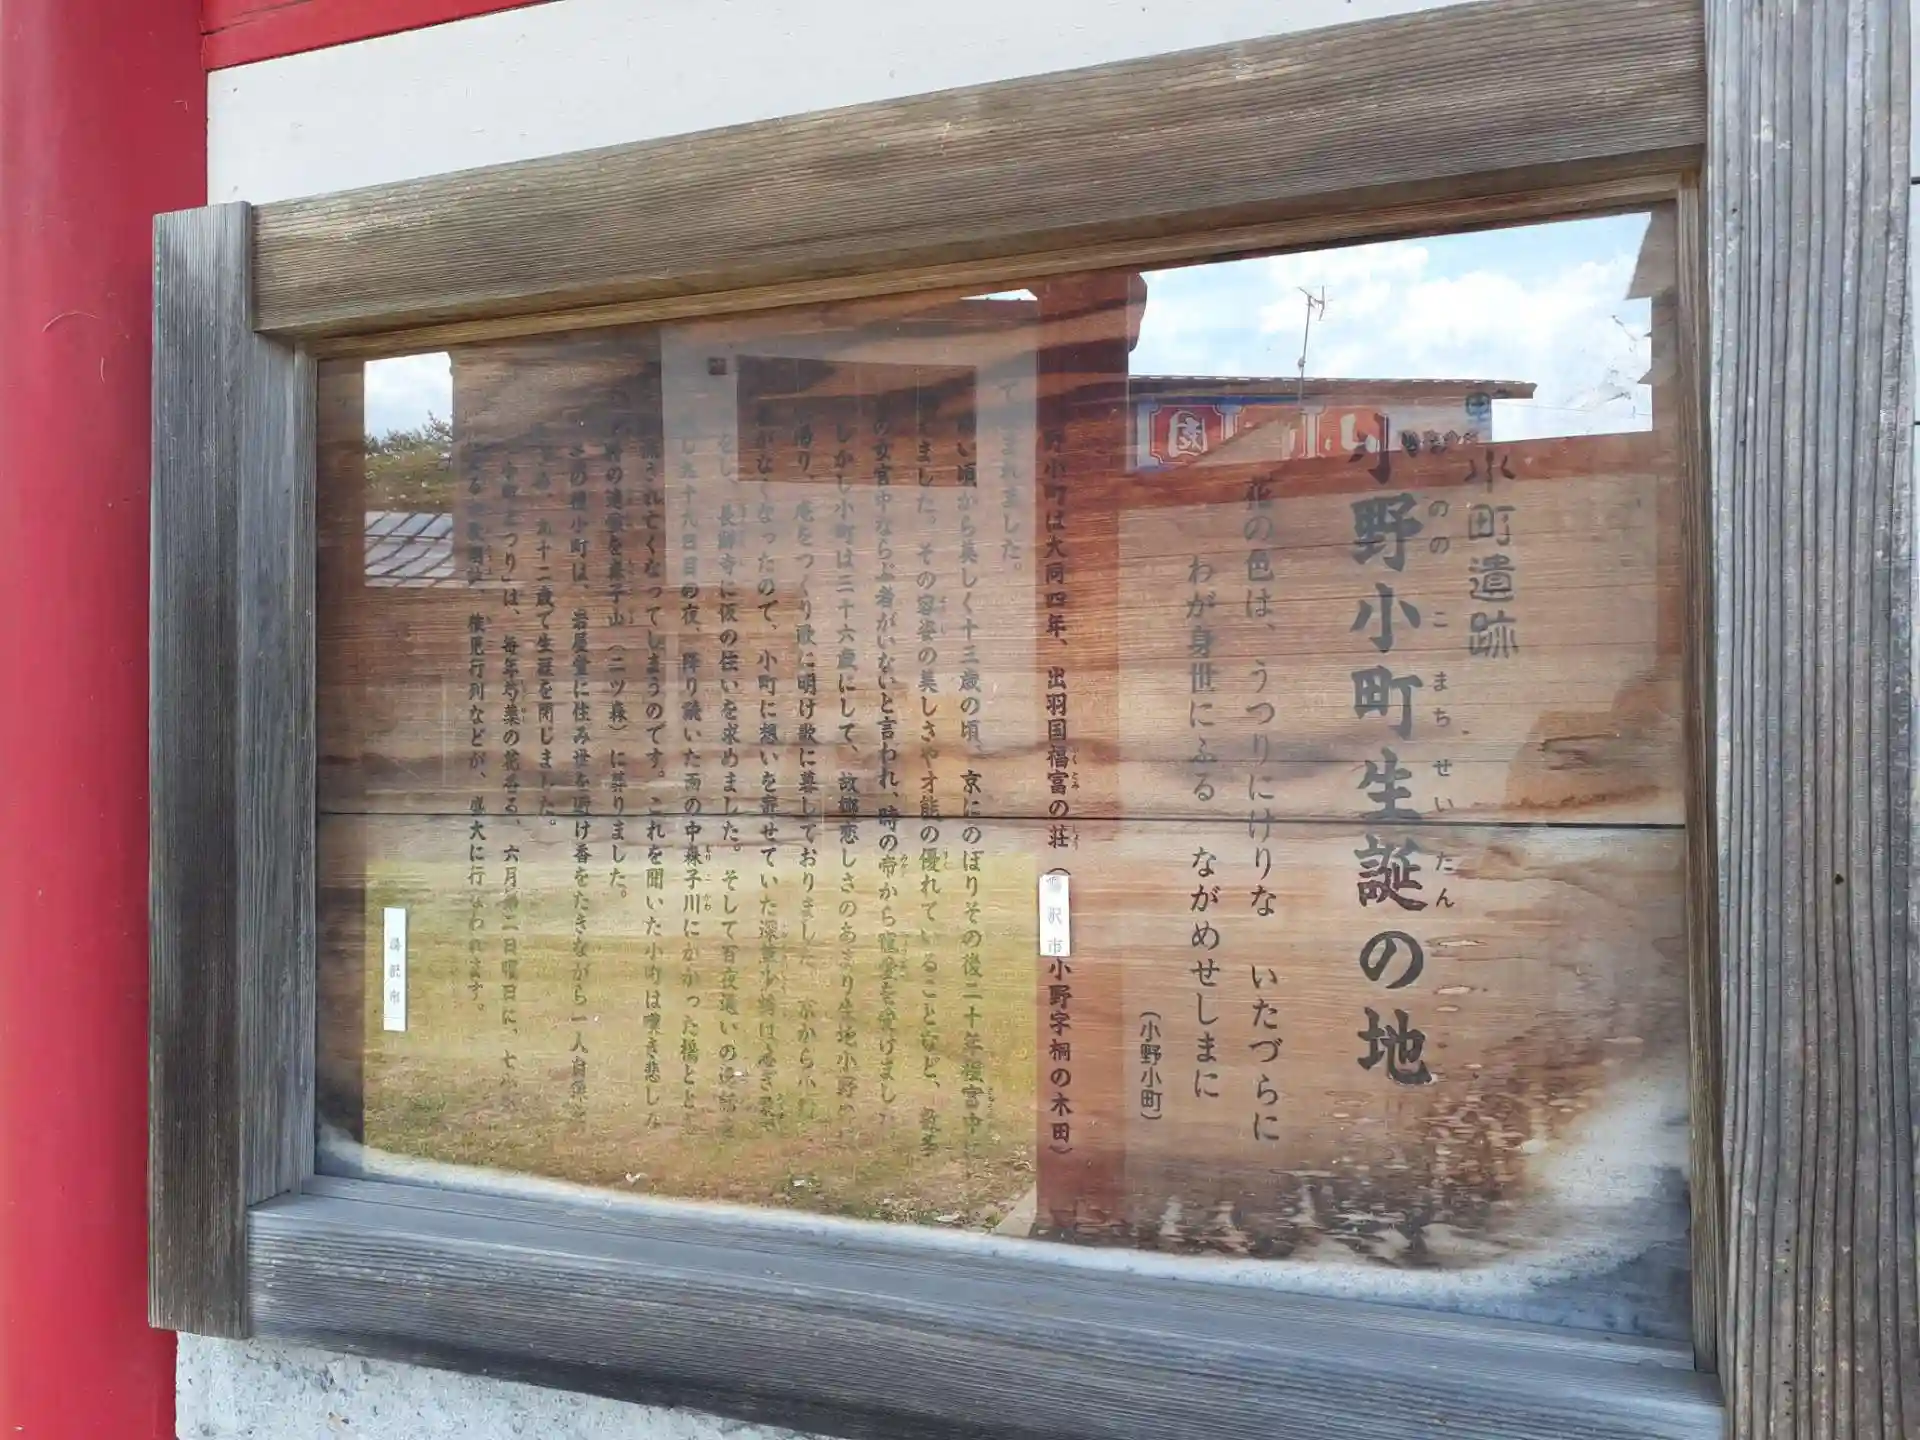 小町遺跡
小野小町生誕の地
ののこまちせいたん
花の色は、うつりにけりな いたづらに
わが身世にふる ながめせしまに
(小野小町)
小町は大同四年、出羽国福富の荘(湯沢市小野字桐の木田)
まれました。
い頃から美しく十三歳の頃、京にのぼりその後二十年程宮中に
ました。その容姿の美しさや才能の優れていることなど、数多
の女官中ならぶ者がいないと言われ、時の帝から寵愛を受けました
しかし小町は三十六歳にして、故郷恋しさのあまり生地小野の
庵をつくり歌に明け歌に暮しておりました。京から小町
がなくなったので、小町に想いを寄せていた深草少将は
長鮮寺に仮の住いを求めました。そして百夜通いの
九十九日目の夜、降り続いた雨の中森子川にかかった橋とと
流されて亡くなってしまうのです。これを聞いた小町は嘆き悲しな
森子山(二ツ森)に葬りました。
その後小町は、岩屋堂に住み世を避け香をたきながら一人自像
九十二歳で生涯を閉じました。
つり」は、毎年芍薬の花香る、六月第二日曜日に、七
稚児行列などが、盛大に行なわれます。
湯沢市